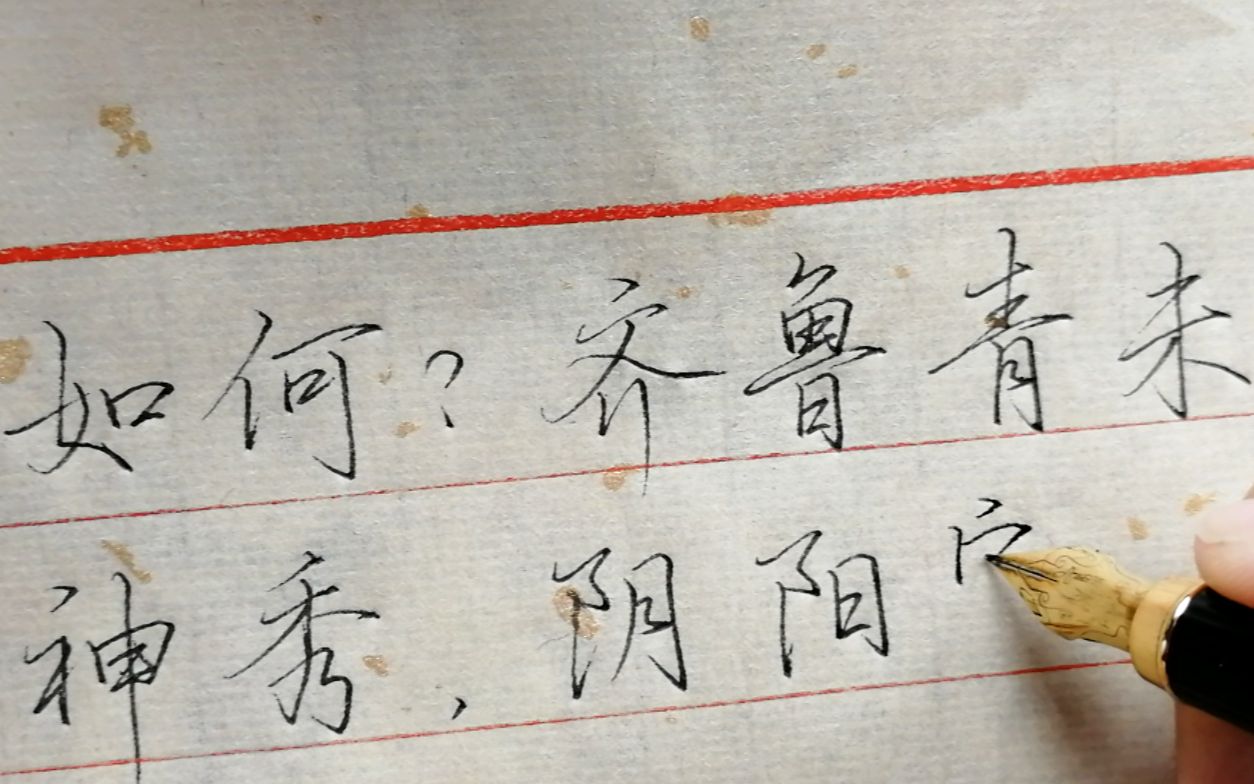 如何？齐鲁青未
神秀，阴阳